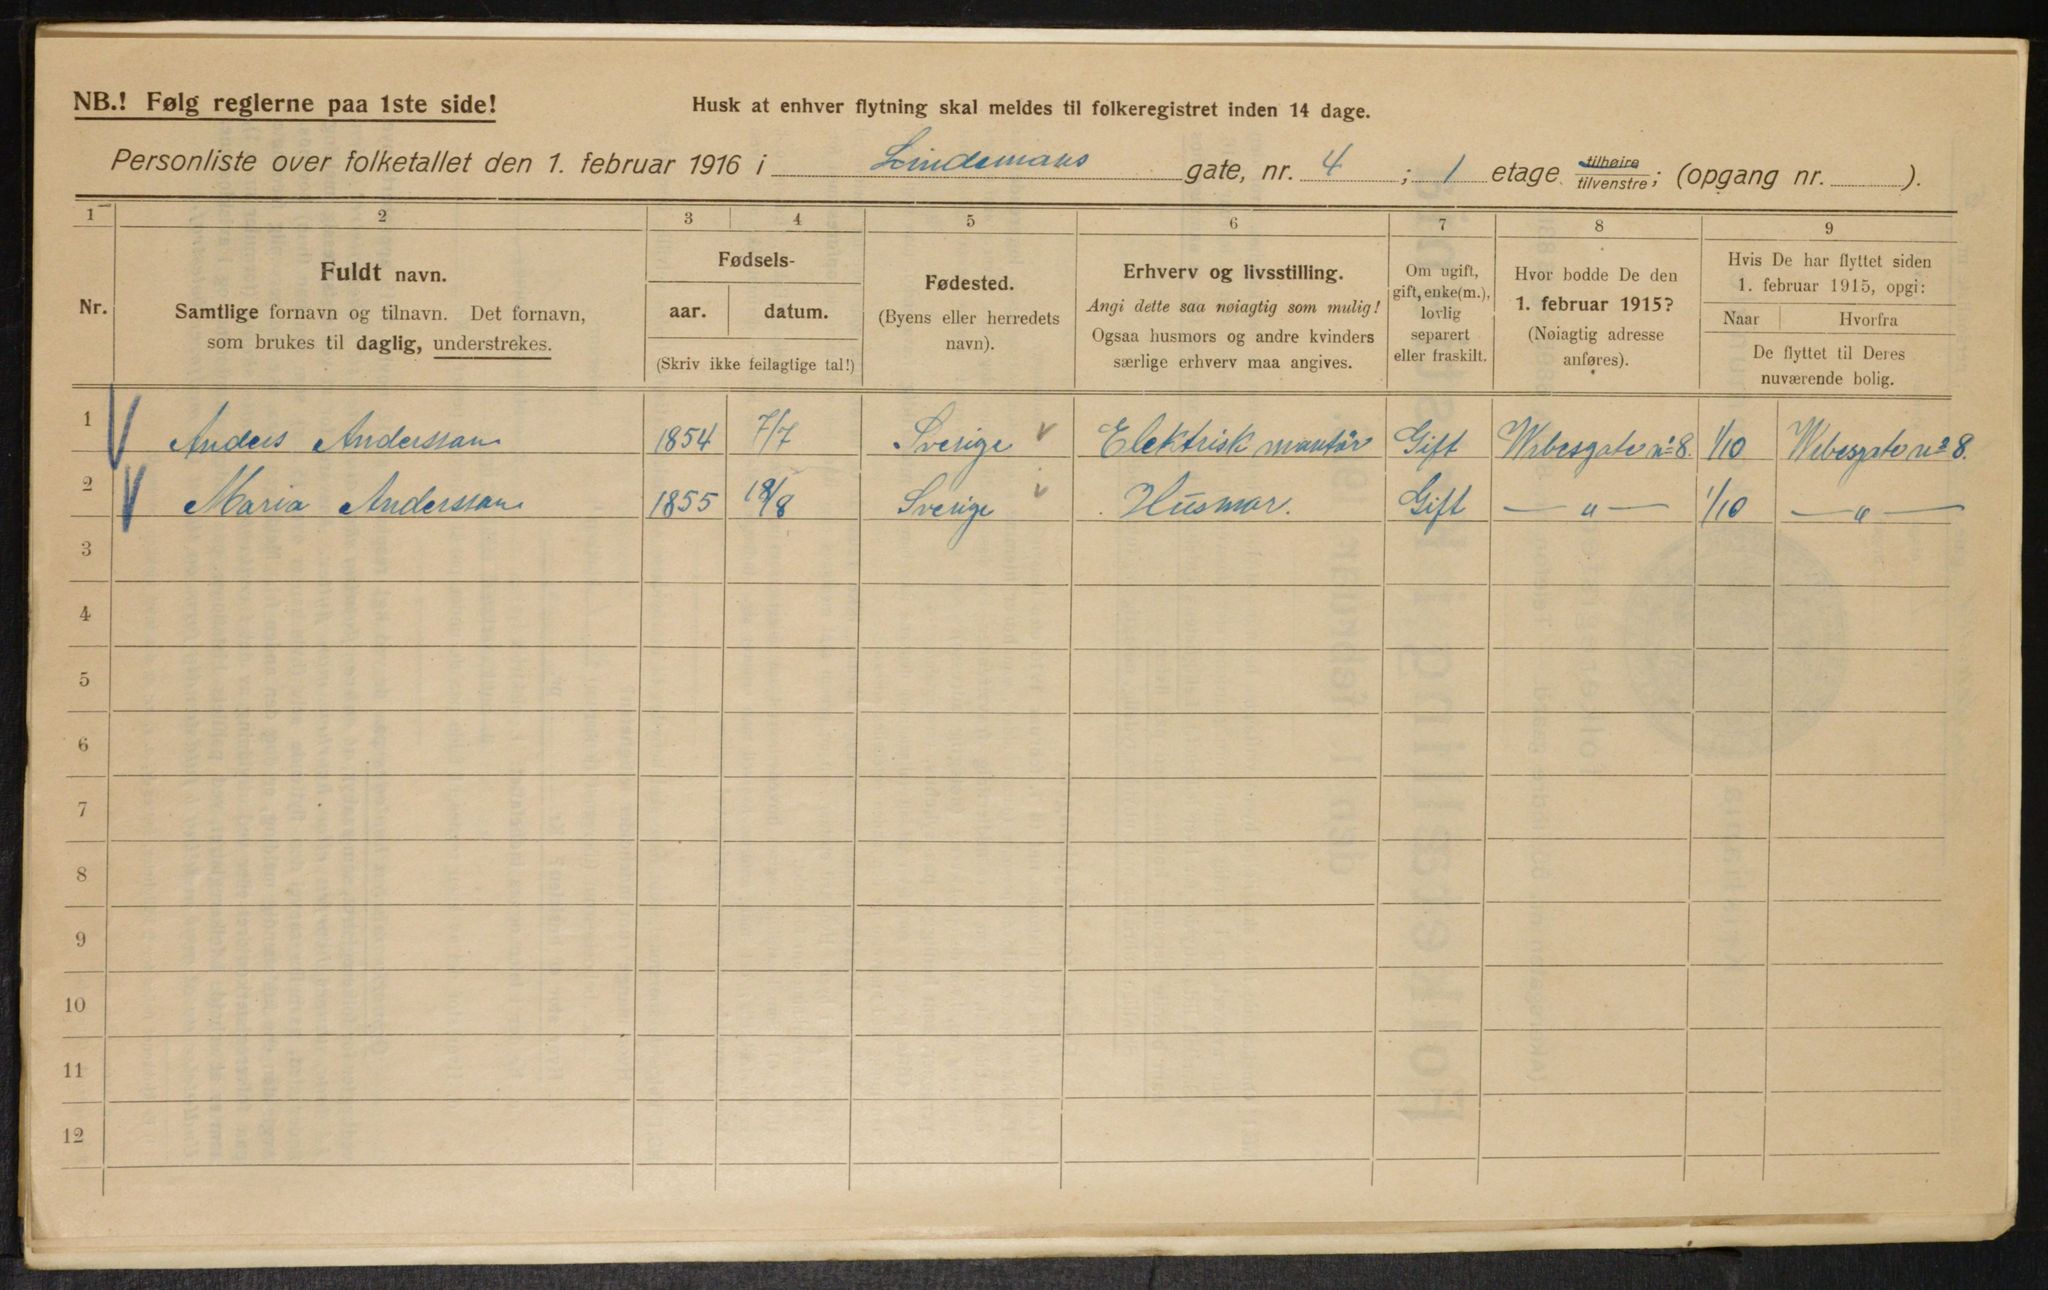 NB.! Følg reglerne paa 1ste side!
Husk at enhver flytning skal meldes til folkeregistret inden 14 dage.
Personliste over folketallet den 1. februar 1916 i Lindemans gate, nr. 4 ; 1 etage tilhøire tilvenstre; (opgang nr. ).
1 2 3 4 5 6 7 8 9
Nr.
Fuldt navn.
Samtlige fornavn og tilnavn. Det fornavn,
som brukes til daglig, understrekes.
Fødsels-
aar. datum.
(Skriv ikke feilagtige tal!)
Fødested.
(Byens eller herredets
navn).
Erhverv og livsstilling.
Angi dette saa nøiagtig som mulig!
Ogsaa husmors og andre kvinders
særlige erhverv maa angives.
Om ugift,
gift, enke(m.),
lovlig
separert
eller fraskilt.
Hvor bodde De den
1. februar 1915?
(Nøiagtig adresse
anføres).
Hvis De har flyttet siden
1. februar 1915, opgi:
Naar Hvorfra
De flyttet til Deres
nuværende bolig.
1 Anders Anderssan 1854 7/7 Sverige Elektrisk mantör Gift Wibesgate nº 8. 1/10 Wibesgate nº 8.
2 Maria Anderssan 1855 18/8 Sverige Husmor. Gift — " — 1/10 — " —
3
4
5
6
7
8
9
10
11
12